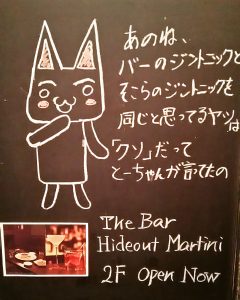 あのね、
バーのジントニックと
そこらのジントニックを
同じと思ってるヤツは
「クソ」だって
とーちゃんが言てたの
The Bar
Hideout Martini
2F Open Now